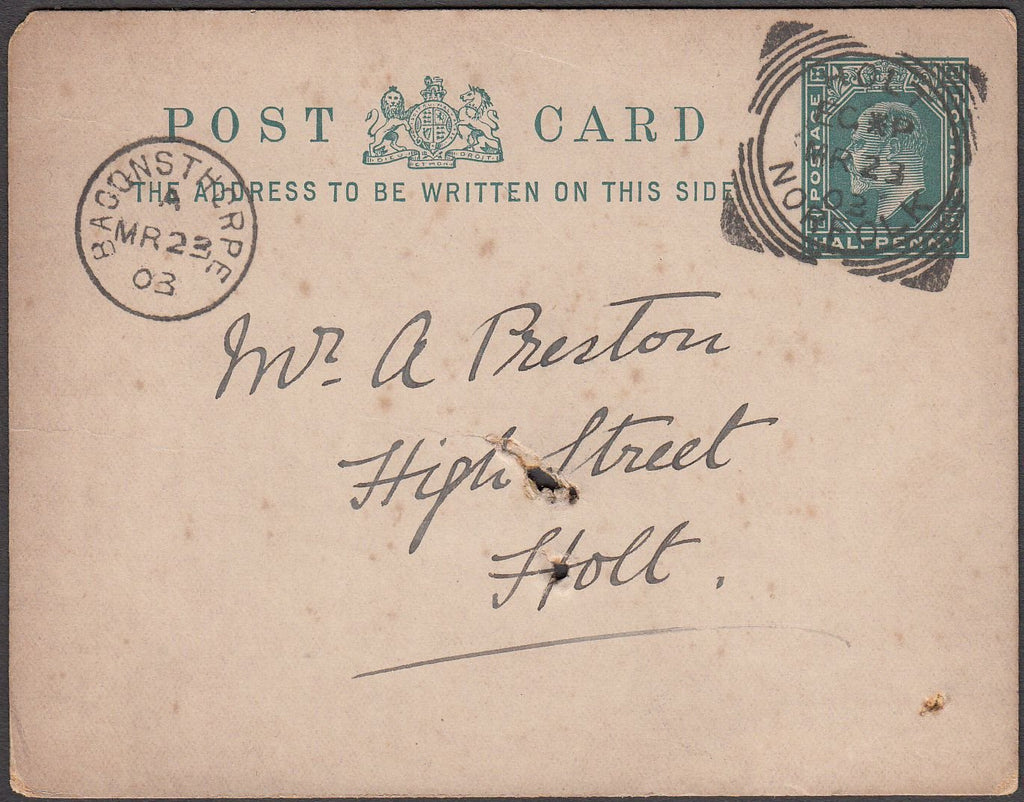 POST CARD
DIEU ET MON DROIT
THE ADDRESS TO BE WRITTEN ON THIS SIDE
BACONSTHORPE
A
MR 23
03
HOLT
MR 23
03
NORFOLK
POSTAGE
HALFPENNY
Mr. A Preston
High Street
Holt.